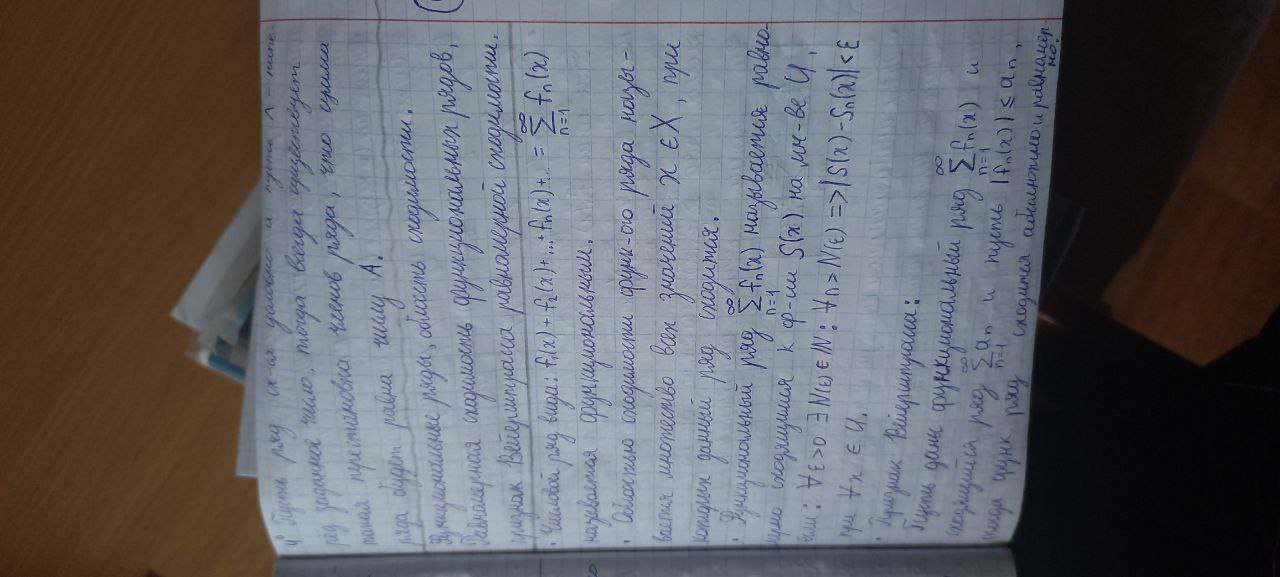 4° Пусть ряд сх-ся условно и пусть А - напе-
ред заданное число, тогда всегда существует
такая перестановка членов ряда, что сумма
ряда будет равна числу А.
Функциональные ряды, область сходимости.
Равномерная сходимость функциональных рядов,
признак Вейерштрасса равномерной сходимости.
• Числовой ряд вида: f₁(x) + f₂(x) + ... + fₙ(x) + ... = ∑ₙ₌₁^∞ fₙ(x)
называется функциональным.
• Областью сходимости функ-ого ряда назы-
вается множество всех значений x ∈ X, при
которых данный ряд сходится.
• Функциональный ряд ∑ₙ₌₁^∞ fₙ(x) называется равно-
мерно сходящимся к ф-ии S(x) на мн-ве U,
если: ∀ε>0 ∃ N(ε) ∈ N: ∀n > N(ε) => |S(x) - Sₙ(x)| < ε
при ∀x ∈ U.
• Признак Вейерштрасса:
Пусть дан функциональный ряд ∑ₙ₌₁^∞ fₙ(x) и
сходящийся ряд ∑ₙ₌₁^∞ aₙ и пусть |fₙ(x)| ≤ aₙ,
тогда функ ряд сходится абсолютно и равномер-
но.